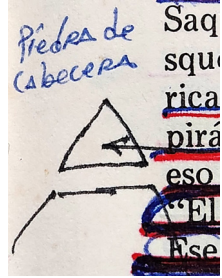 Piedra de
CABECERA
Saq
sque
rica
pirá
eso
"El
Ese